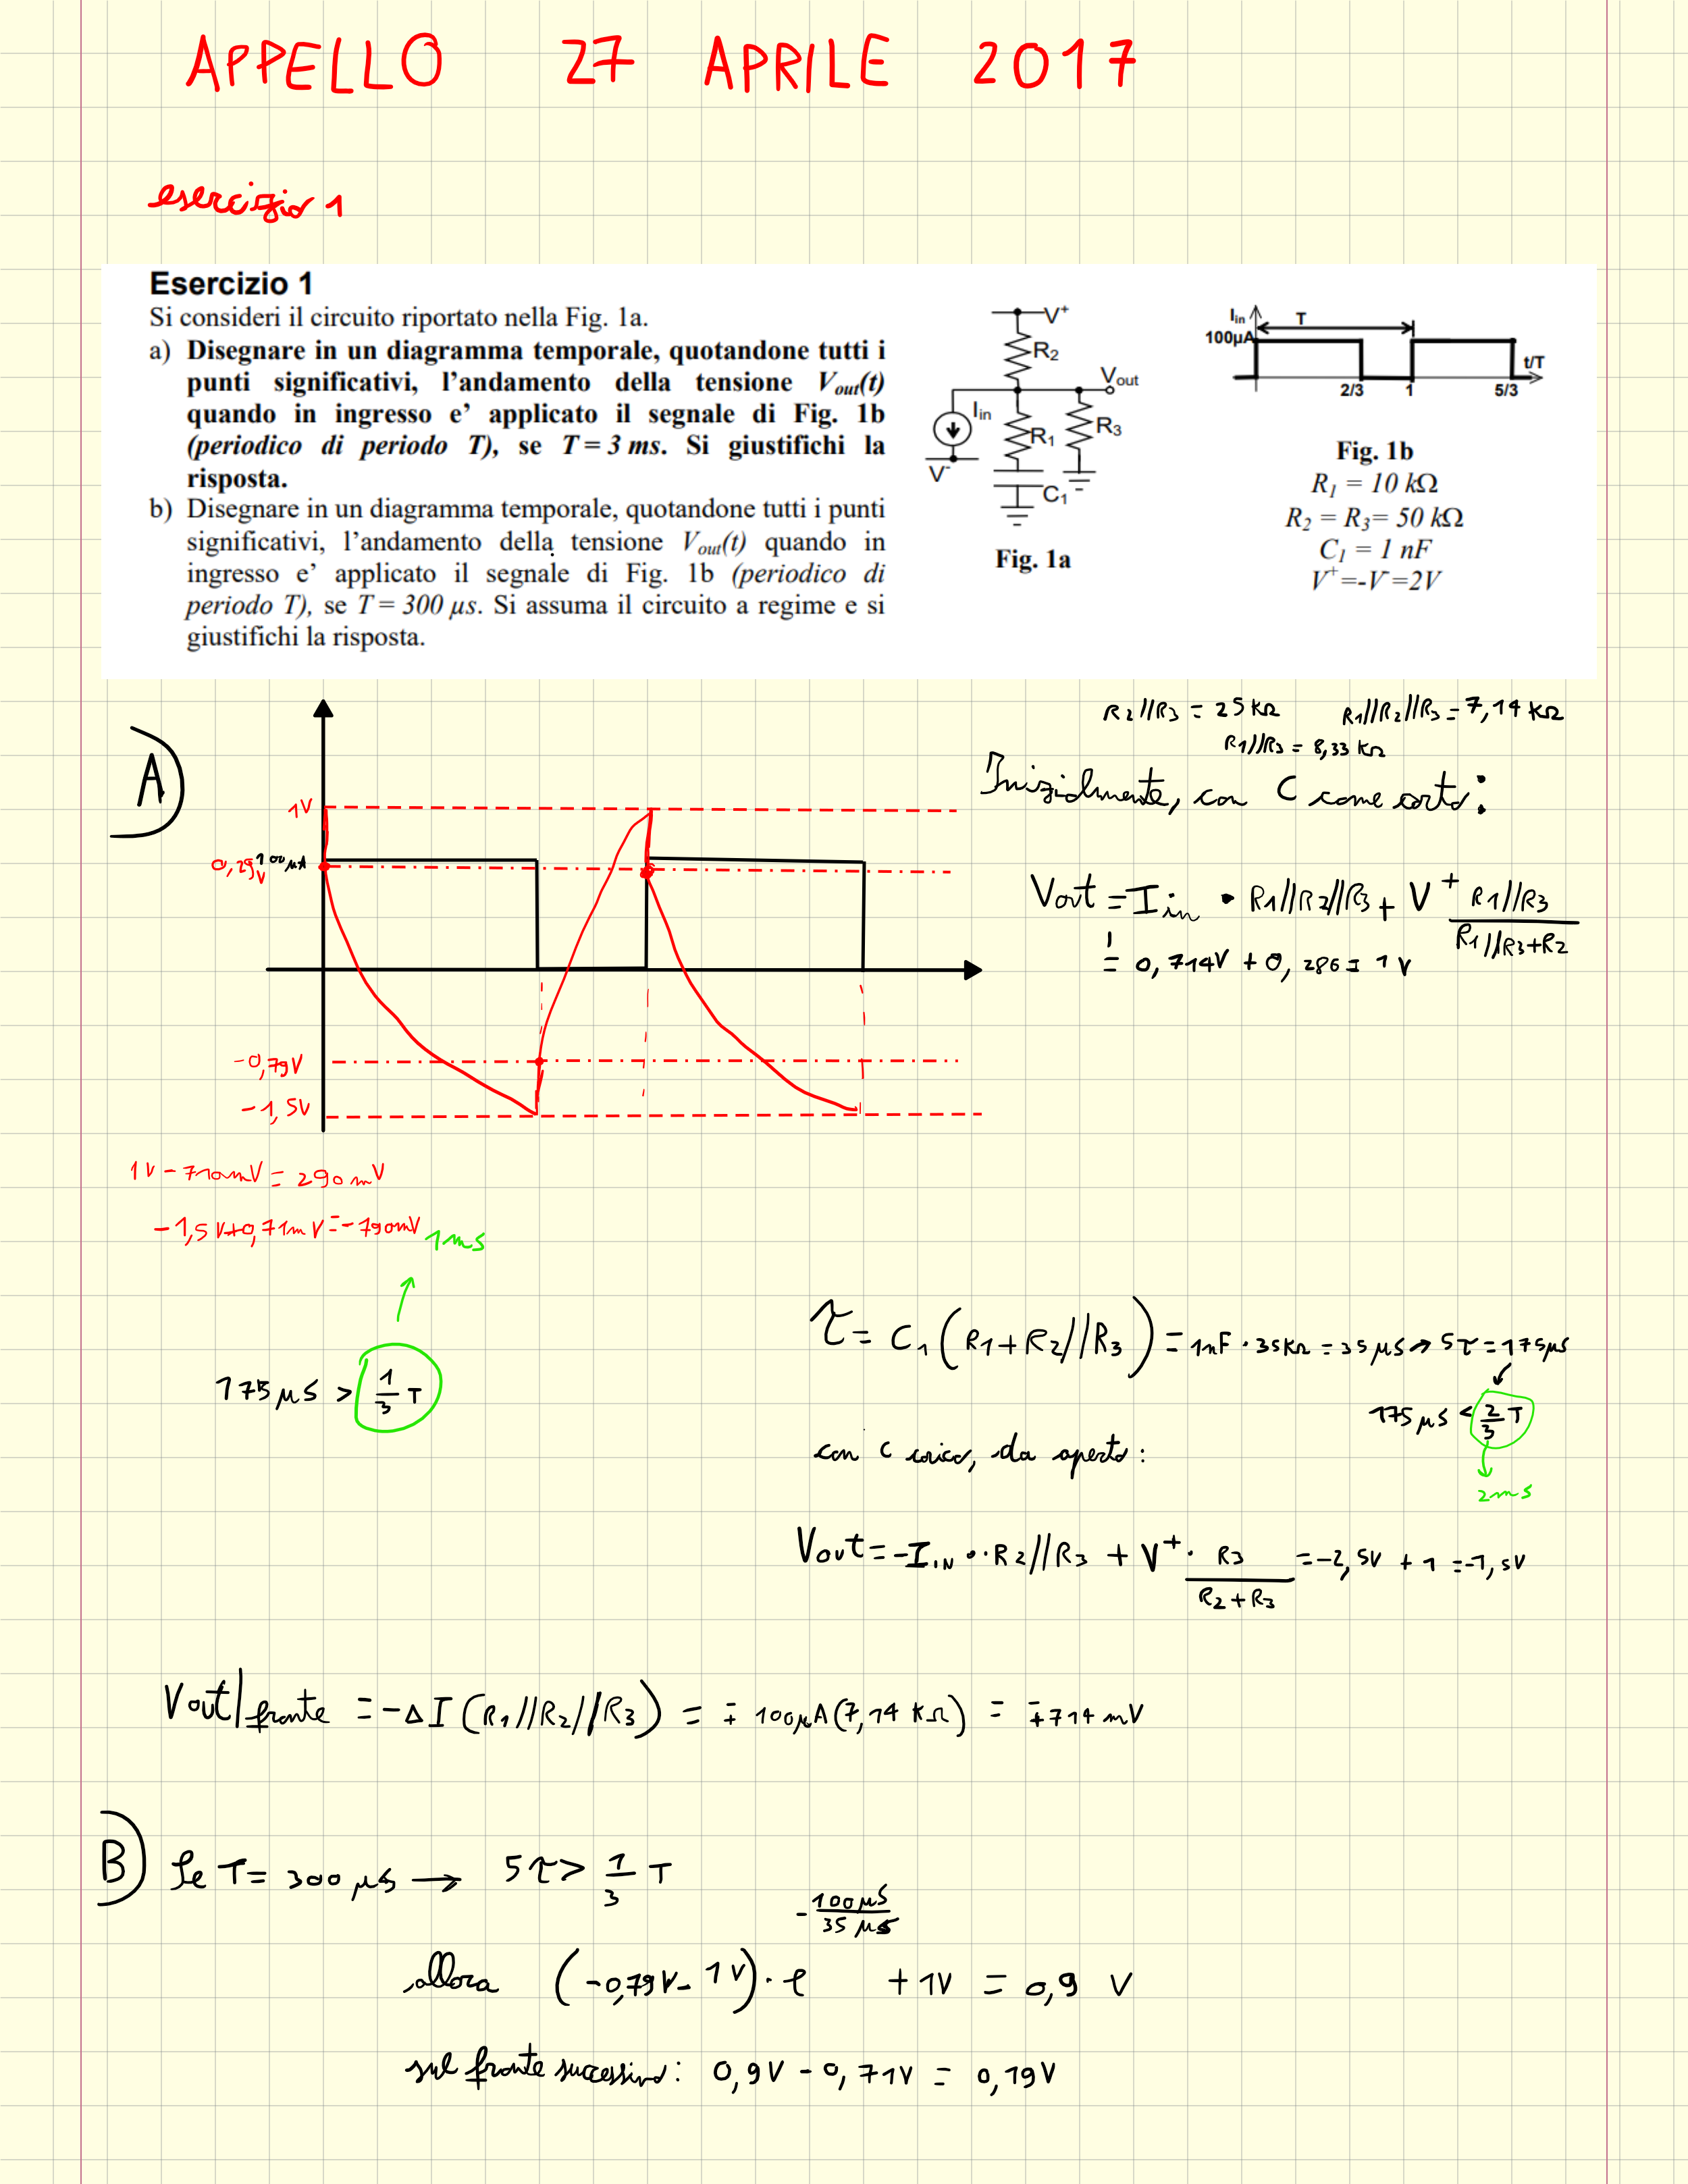 APPELLO 27 APRILE 2017
esercizio 1
Esercizio 1
Si consideri il circuito riportato nella Fig. 1a.
a) Disegnare in un diagramma temporale, quotandone tutti i
punti significativi, l'andamento della tensione Vout(t)
quando in ingresso e' applicato il segnale di Fig. 1b
(periodico di periodo T), se T = 3 ms. Si giustifichi la
risposta.
b) Disegnare in un diagramma temporale, quotandone tutti i punti
significativi, l'andamento della tensione Vout(t) quando in
ingresso e' applicato il segnale di Fig. 1b (periodico di
periodo T), se T = 300 µs. Si assuma il circuito a regime e si
giustifichi la risposta.
V+
R2
Vout
Iin
R1
R3
V-
C1
Fig. 1a
Iin
T
100µA
t/T
2/3 1 5/3
Fig. 1b
R1 = 10 kΩ
R2 = R3= 50 kΩ
C1 = 1 nF
V+=-V-=2V
R2//R3 = 25 kΩ R1//R2//R3 = 7,14 kΩ
R1//R3 = 8,33 kΩ
A)
1V
0,29V
100 µA
-0,79V
-1,5V
Inizialmente, con C come corto:
Vout = Iin · R1//R2//R3 + V+ R1//R3 / R1//R3+R2
= 0,714V + 0,286 = 1 V
1V - 710mV = 290 mV
-1,5V+0,71mV = -790mV
1ms
175 µs > 1/3 T
τ = C1 (R1+R2//R3) = 1nF · 35kΩ = 35 µs → 5τ = 175µs
175 µs < 2/3 T
2ms
con C carico, da aperto:
Vout = -IIN · · R2//R3 + V+ · R3 / R2+R3 = -2,5V + 1 = -1,5V
Vout|fronte = -ΔI (R1//R2//R3) = ∓ 100µA (7,14 kΩ) = ∓714 mV
B) Se T = 300 µs → 5τ > 1/3 T
allora (-0,79V - 1V) · e^(-100µs/35µs) + 1V = 0,9 V
sul fronte successivo: 0,9V - 0,71V = 0,19V